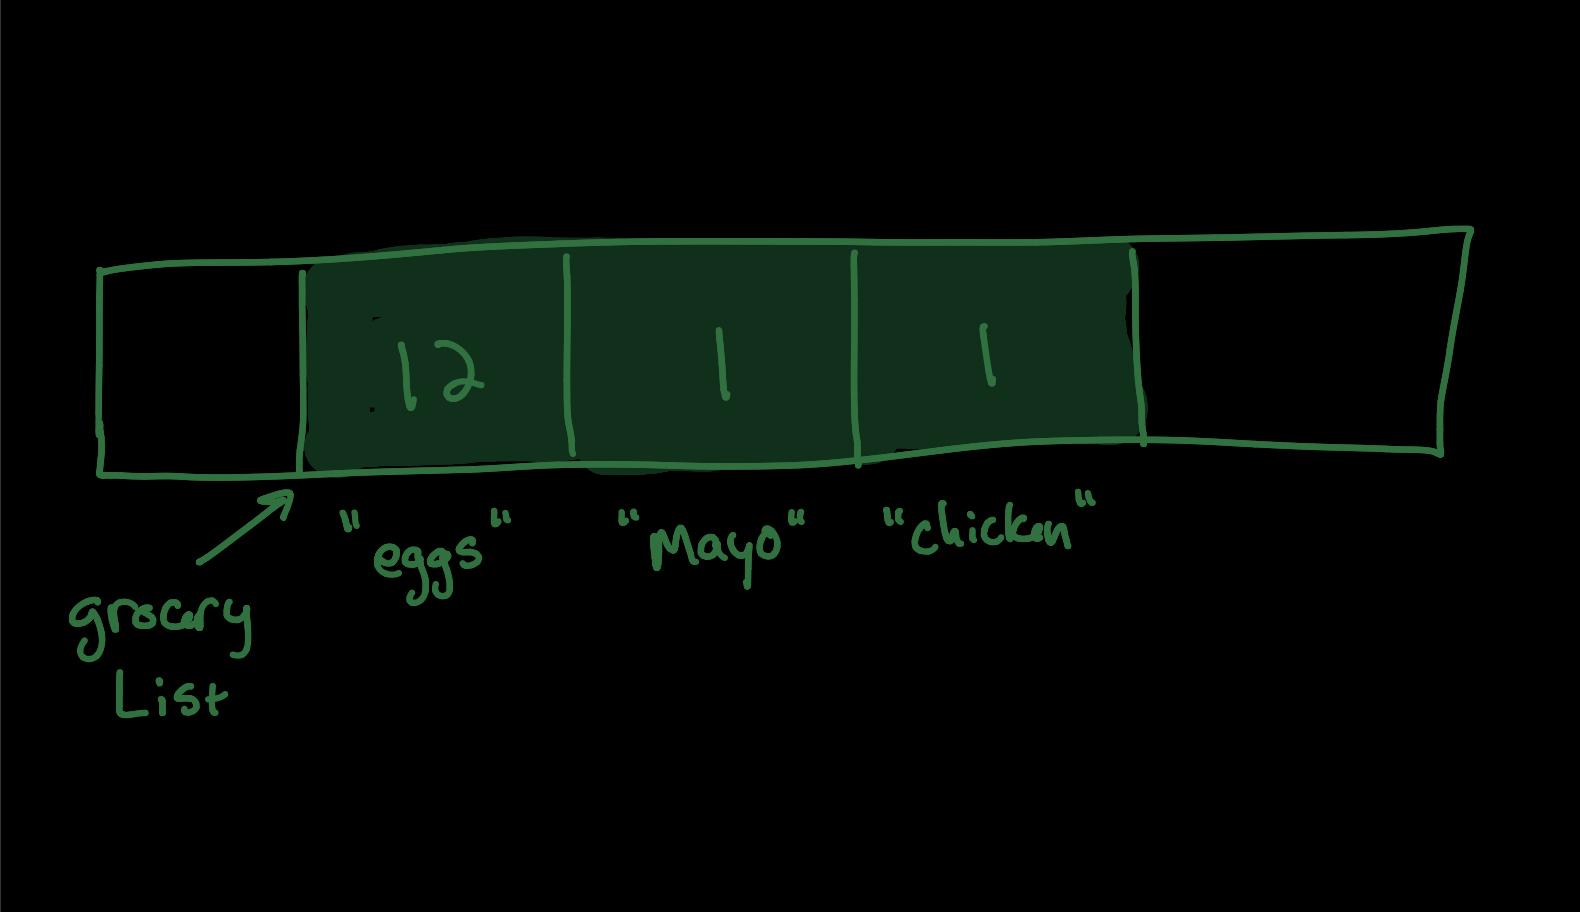 12 1 1
"eggs" "Mayo" "chicken"
grocery
List